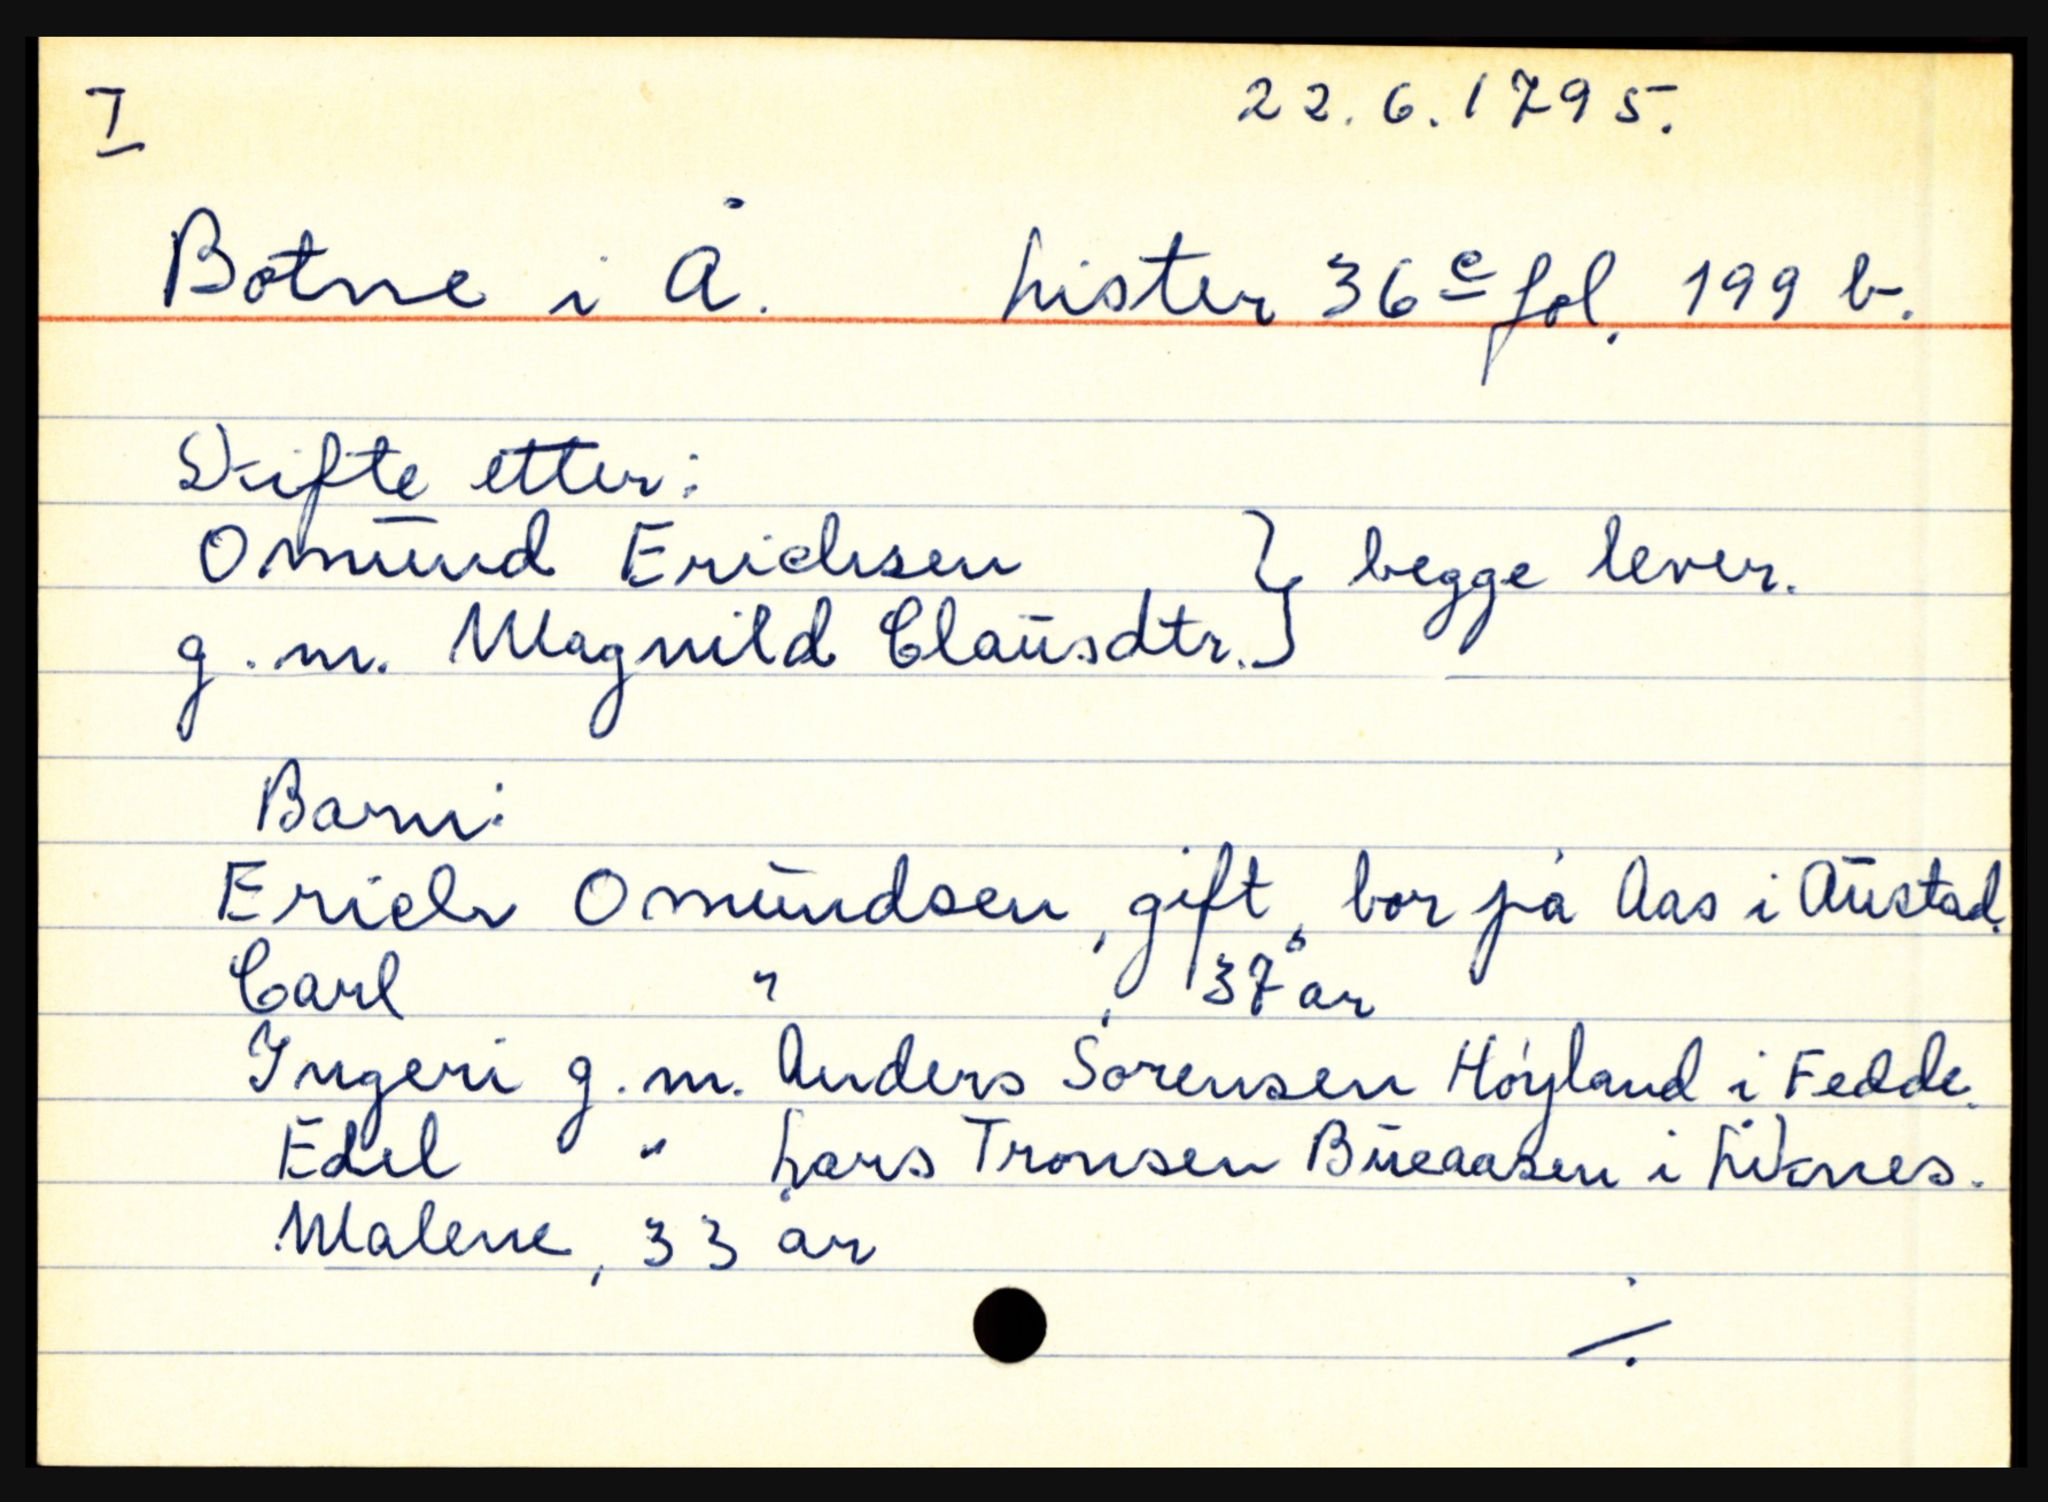 I 22.6.1795.
Botne i Å. Lister 36 e fol. 199 b.
Skifte etter:
Omund Erichsen } begge lever.
g.m. Magnild Clausdtr. }
Barn:
Erich Omundsen, gift, bor på Aas i Austad.
Carl " , 37 år
Ingeri g.m. Anders Sørensen Høyland i Fedde.
Edel " Lars Tronsen Bueaasen i Liknes.
Malene, 33 år
./.